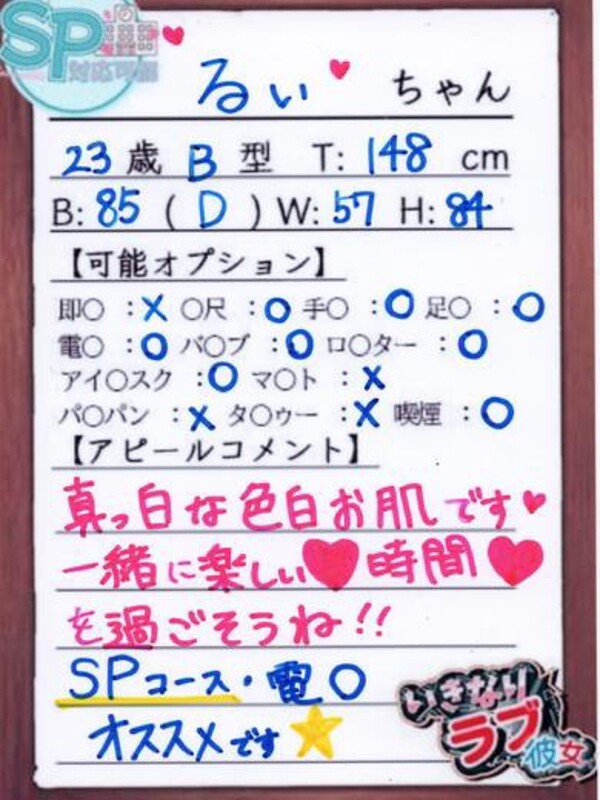 SP
対応可能
るぃ ちゃん
23歳 B型 T: 148 cm
B: 85 ( D ) W: 57 H: 84
【可能オプション】
即○ :× ○尺 :○ 手○ :○ 足○ :○
電○ :○ バ○ブ :○ ロ○ター :○
アイ○スク :○ マ○ト :×
パ○パン :× タ○ゥー :× 喫煙 :○
【アピールコメント】
真っ白な色白お肌です♥
一緒に楽しい♥時間♥
を過ごそうね!!
SPコース・電○
オススメです★
いきなり
ラブ彼女